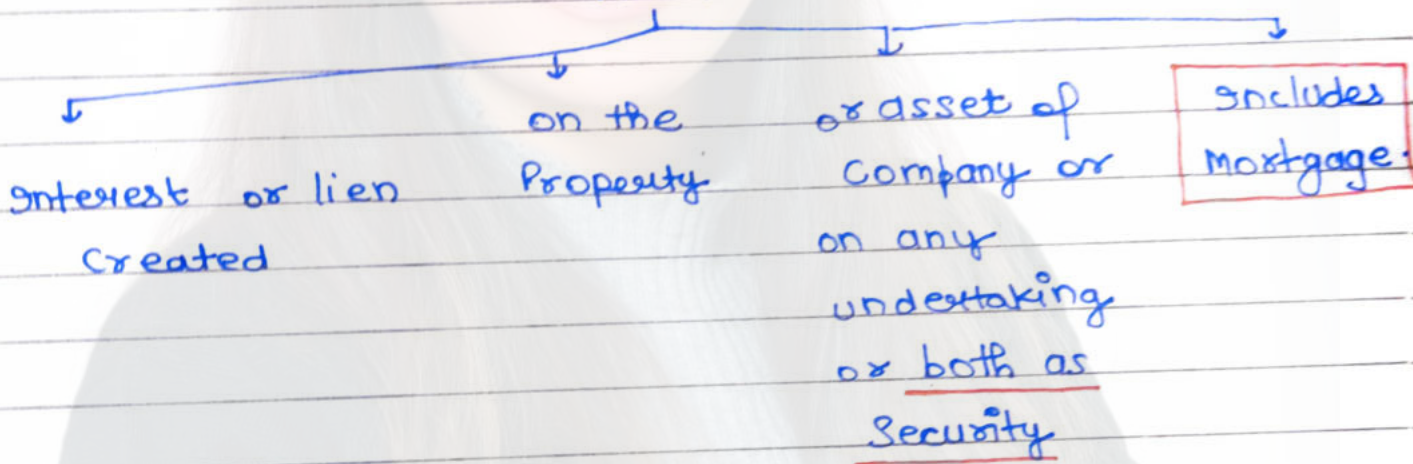 Interest or lien
created
on the
Property
or asset of
Company or
on any
undertaking
or both as
Security
Includes
mortgage.